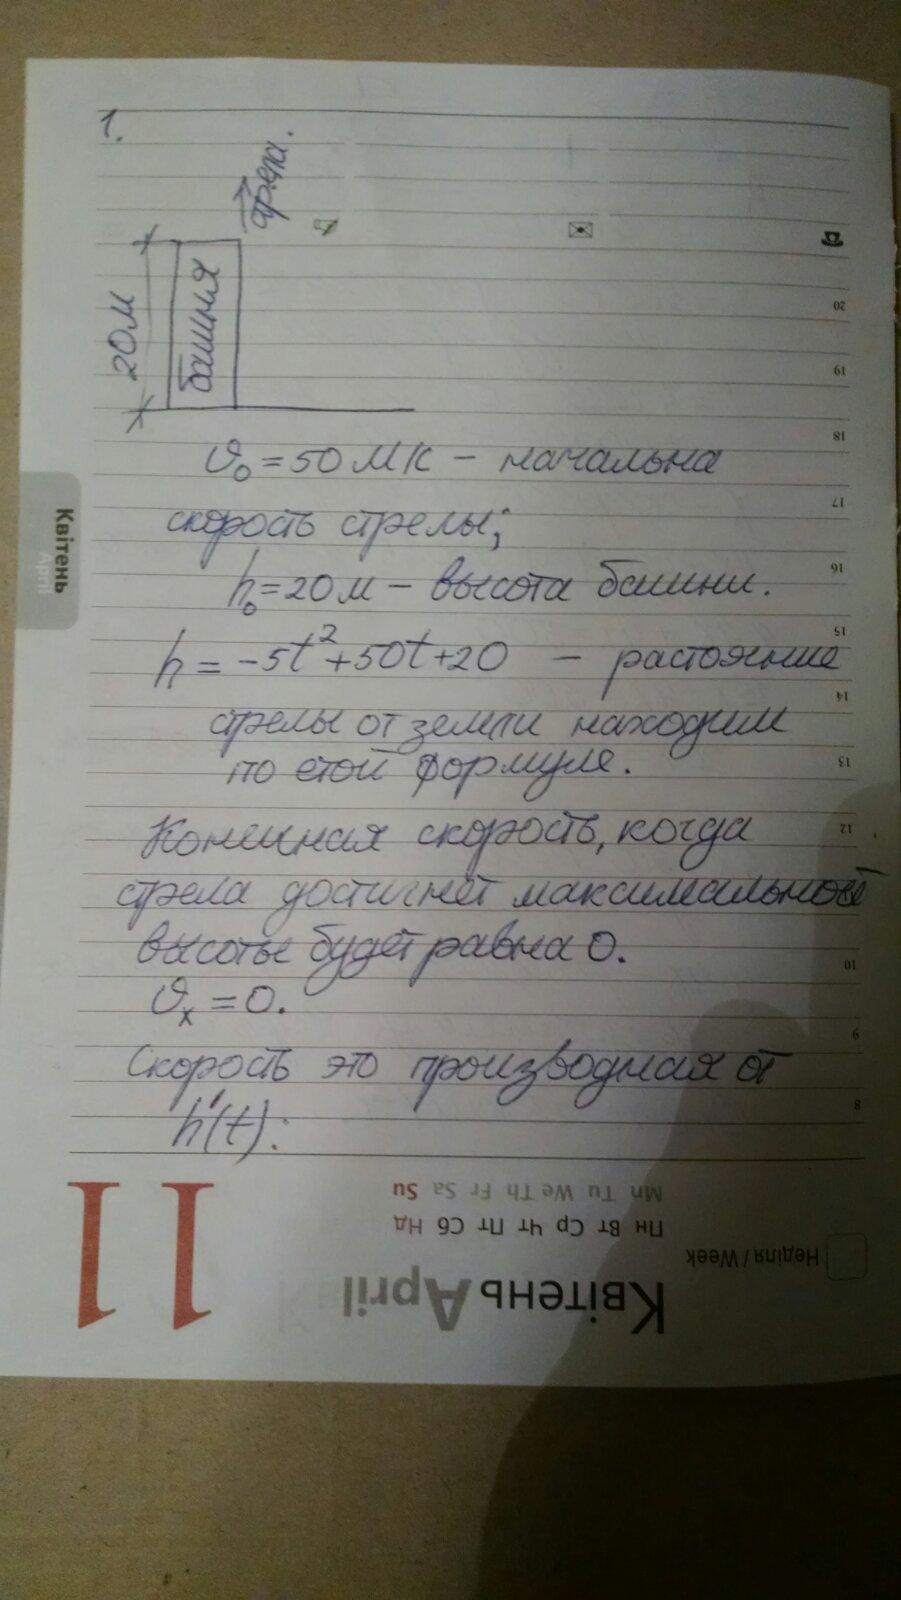 1.
стрела.
20м
башня
υ₀ = 50 м/с – начальна
скорость стрелы;
h₀ = 20 м – высота башни.
h = -5t² + 50t + 20 – растояние
стрелы от земли находим
по етой формуле.
Конечная скорость, когда
стрела достигнет максимальной
высоты будет равна 0.
υₓ = 0.
Скорость это производная от
h'(t):
20
19
18
17
16
15
14
13
12
10
9
8
Квітень
April
Mn Tu We Th Fr Sa Su
Пн Вт Ср Чт Пт Сб Нд
Неділя / Week
Квітень April
11